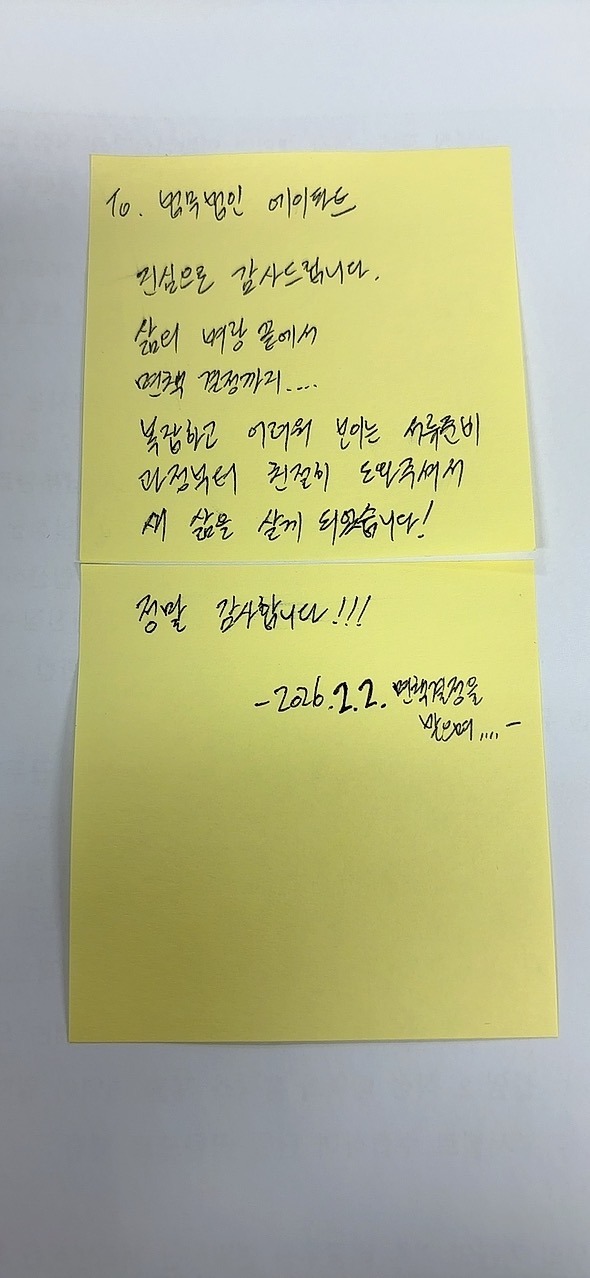 To. 법무법인 에이파트
진심으로 감사드립니다.
삶의 벼랑 끝에서
면책 결정까지....
복잡하고 어려워 보이는 서류준비
과정부터 친절히 도와주셔서
새 삶을 살게 되었습니다!
정말 감사합니다!!!
-2026.2.2. 면책결정을
받으며....-